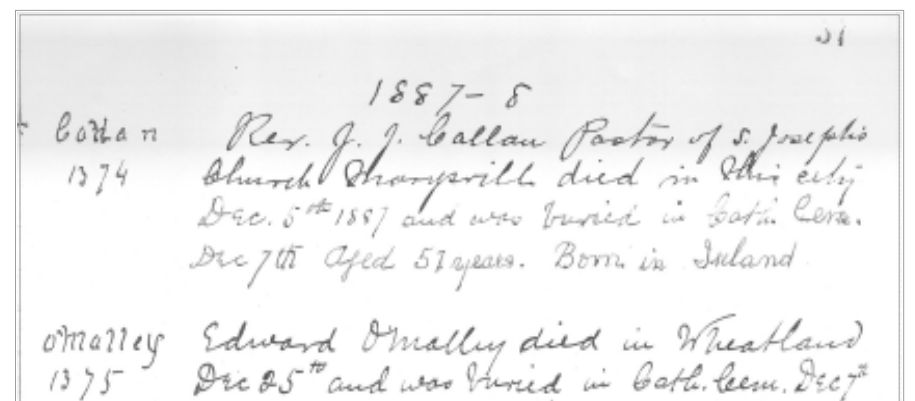 31
1887-8
Callan Rev. J. J. Callan Pastor of S. Joseph's
1374 Church Marysville died in this city
Dec. 5th 1887 and was buried in Cath. Cem.
Dec 7th aged 51 years. Born in Ireland
O'Malley Edward O'Malley died in Wheatland
1375 Dec 5th and was buried in Cath. Cem. Dec 7th